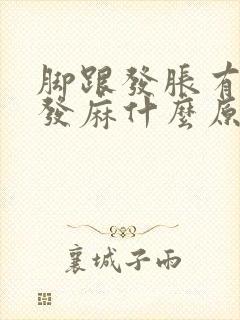 脚跟發脹有
發麻什麼原
襄城子兩